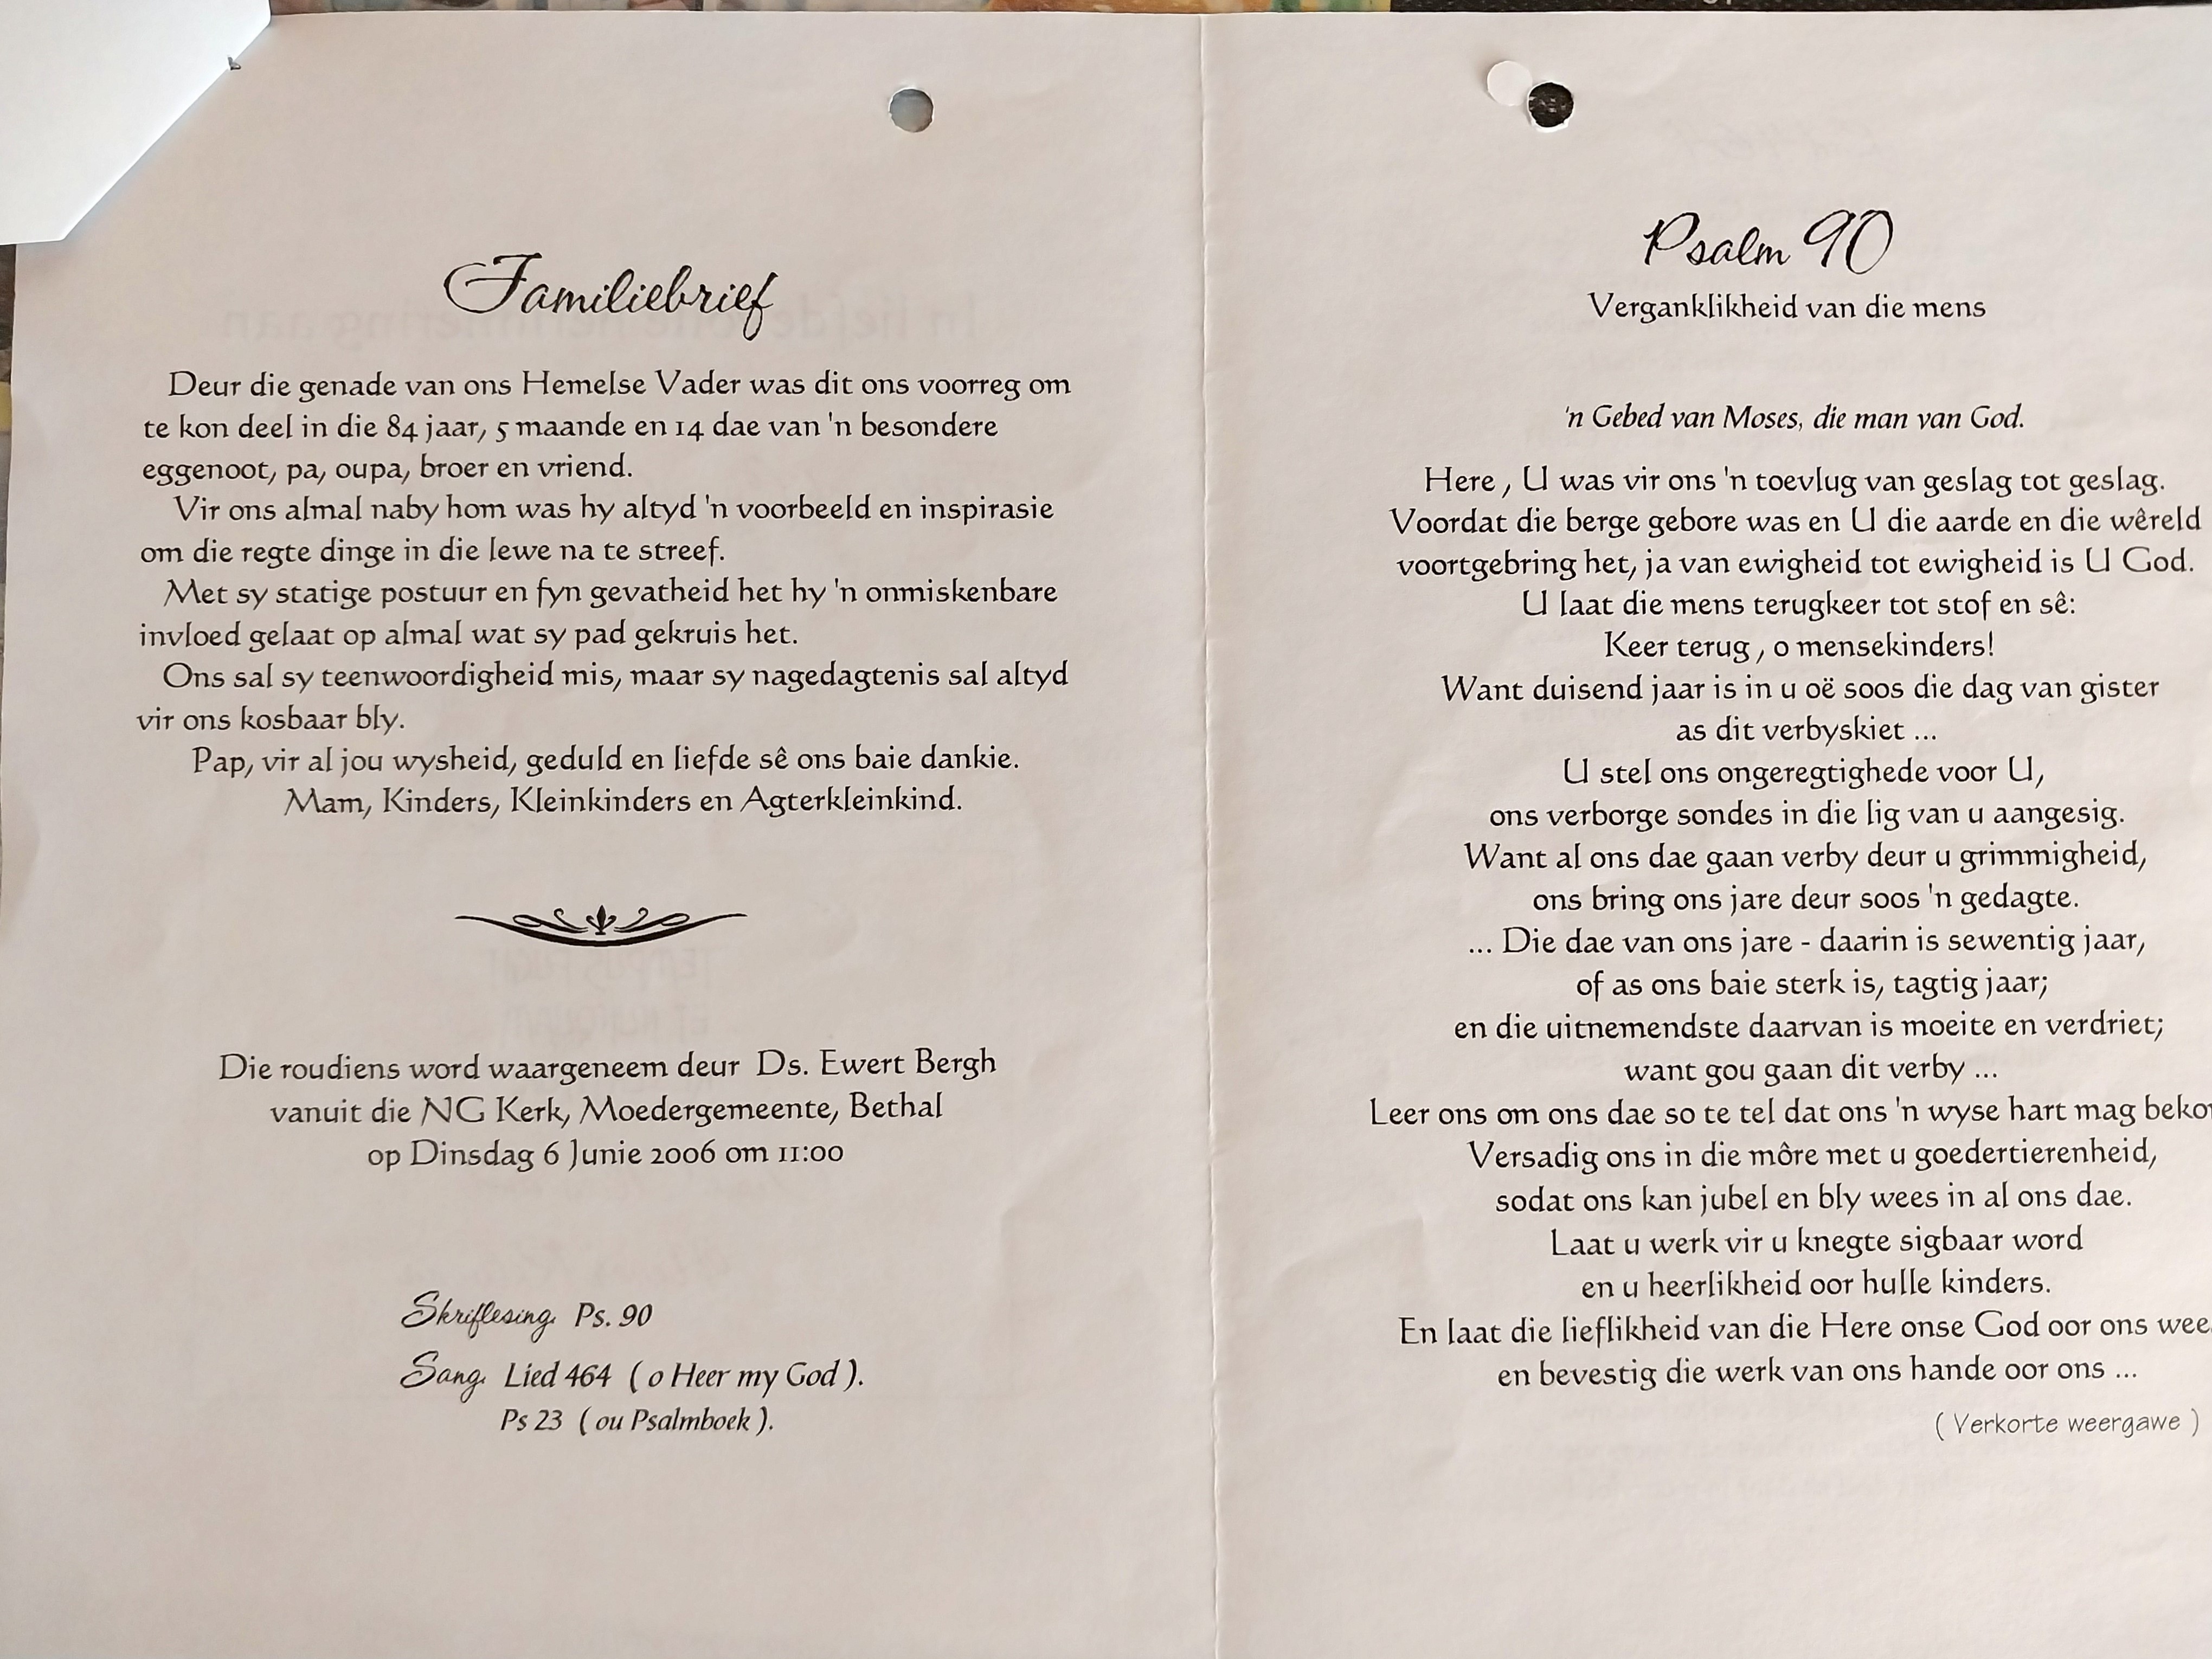 Familiebrief
Deur die genade van ons Hemelse Vader was dit ons voorreg om
te kon deel in die 84 jaar, 5 maande en 14 dae van 'n besondere
eggenoot, pa, oupa, broer en vriend.
Vir ons almal naby hom was hy altyd 'n voorbeeld en inspirasie
om die regte dinge in die lewe na te streef.
Met sy statige postuur en fyn gevatheid het hy 'n onmiskenbare
invloed gelaat op almal wat sy pad gekruis het.
Ons sal sy teenwoordigheid mis, maar sy nagedagtenis sal altyd
vir ons kosbaar bly.
Pap, vir al jou wysheid, geduld en liefde sê ons baie dankie.
Mam, Kinders, Kleinkinders en Agterkleinkind.
Die roudiens word waargeneem deur Ds. Ewert Bergh
vanuit die NG Kerk, Moedergemeente, Bethal
op Dinsdag 6 Junie 2006 om 11:00
Skriflesing. Ps. 90
Sang. Lied 464 ( o Heer my God ).
Ps 23 ( ou Psalmboek ).
Psalm 90
Verganklikheid van die mens
'n Gebed van Moses, die man van God.
Here , U was vir ons 'n toevlug van geslag tot geslag.
Voordat die berge gebore was en U die aarde en die wêreld
voortgebring het, ja van ewigheid tot ewigheid is U God.
U laat die mens terugkeer tot stof en sê:
Keer terug , o mensekinders!
Want duisend jaar is in u oë soos die dag van gister
as dit verbyskiet ...
U stel ons ongeregtighede voor U,
ons verborge sondes in die lig van u aangesig.
Want al ons dae gaan verby deur u grimmigheid,
ons bring ons jare deur soos 'n gedagte.
... Die dae van ons jare - daarin is sewentig jaar,
of as ons baie sterk is, tagtig jaar;
en die uitnemendste daarvan is moeite en verdriet;
want gou gaan dit verby ...
Leer ons om ons dae so te tel dat ons 'n wyse hart mag
Versadig ons in die môre met u goedertierenheid,
sodat ons kan jubel en bly wees in al ons dae.
Laat u werk vir u knegte sigbaar word
en u heerlikheid oor hulle kinders.
En laat die lieflikheid van die Here onse God oor ons
en bevestig die werk van ons hande oor ons ...
( Verkorte weergawe )